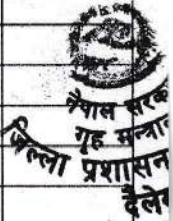 नेपाल सरक
गृह मन्त्रा
जिल्ला प्रशासन
दैले